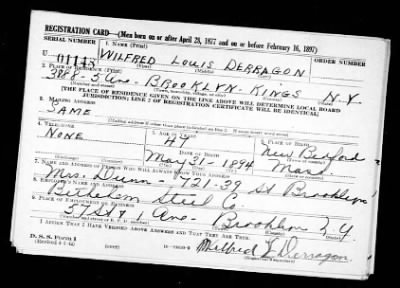 REGISTRATION CARD—(Men born on or after April 28, 1877 and on or before February 16, 1897)
SERIAL NUMBER 1. NAME (Print) ORDER NUMBER
U 01148 WILFRED LOUIS DERRAGON
2. PLACE OF RESIDENCE (Print)
3888-5 Ave- BROOKLYN- KINGS N.Y
[THE PLACE OF RESIDENCE GIVEN ON THE LINE ABOVE WILL DETERMINE LOCAL BOARD
JURISDICTION; LINE 2 OF REGISTRATION CERTIFICATE WILL BE IDENTICAL]
3. MAILING ADDRESS
SAME
4. TELEPHONE 5. AGE IN YEARS 6. PLACE OF BIRTH
NONE 47 New Bedford
DATE OF BIRTH
May 31-1894 Mass.
7. NAME AND ADDRESS OF PERSON WHO WILL ALWAYS KNOW YOUR ADDRESS
Mrs. Dunn- 721-39 St Brooklyn
8. EMPLOYER'S NAME AND ADDRESS
Bethlehem Steel C.
9. PLACE OF EMPLOYMENT OR BUSINESS
57 St & 1 Ave- Brooklyn N.Y
I AFFIRM THAT I HAVE VERIFIED ABOVE ANSWERS AND THAT THEY ARE TRUE.
D. S. S. Form 1
Wilfred L Derragon